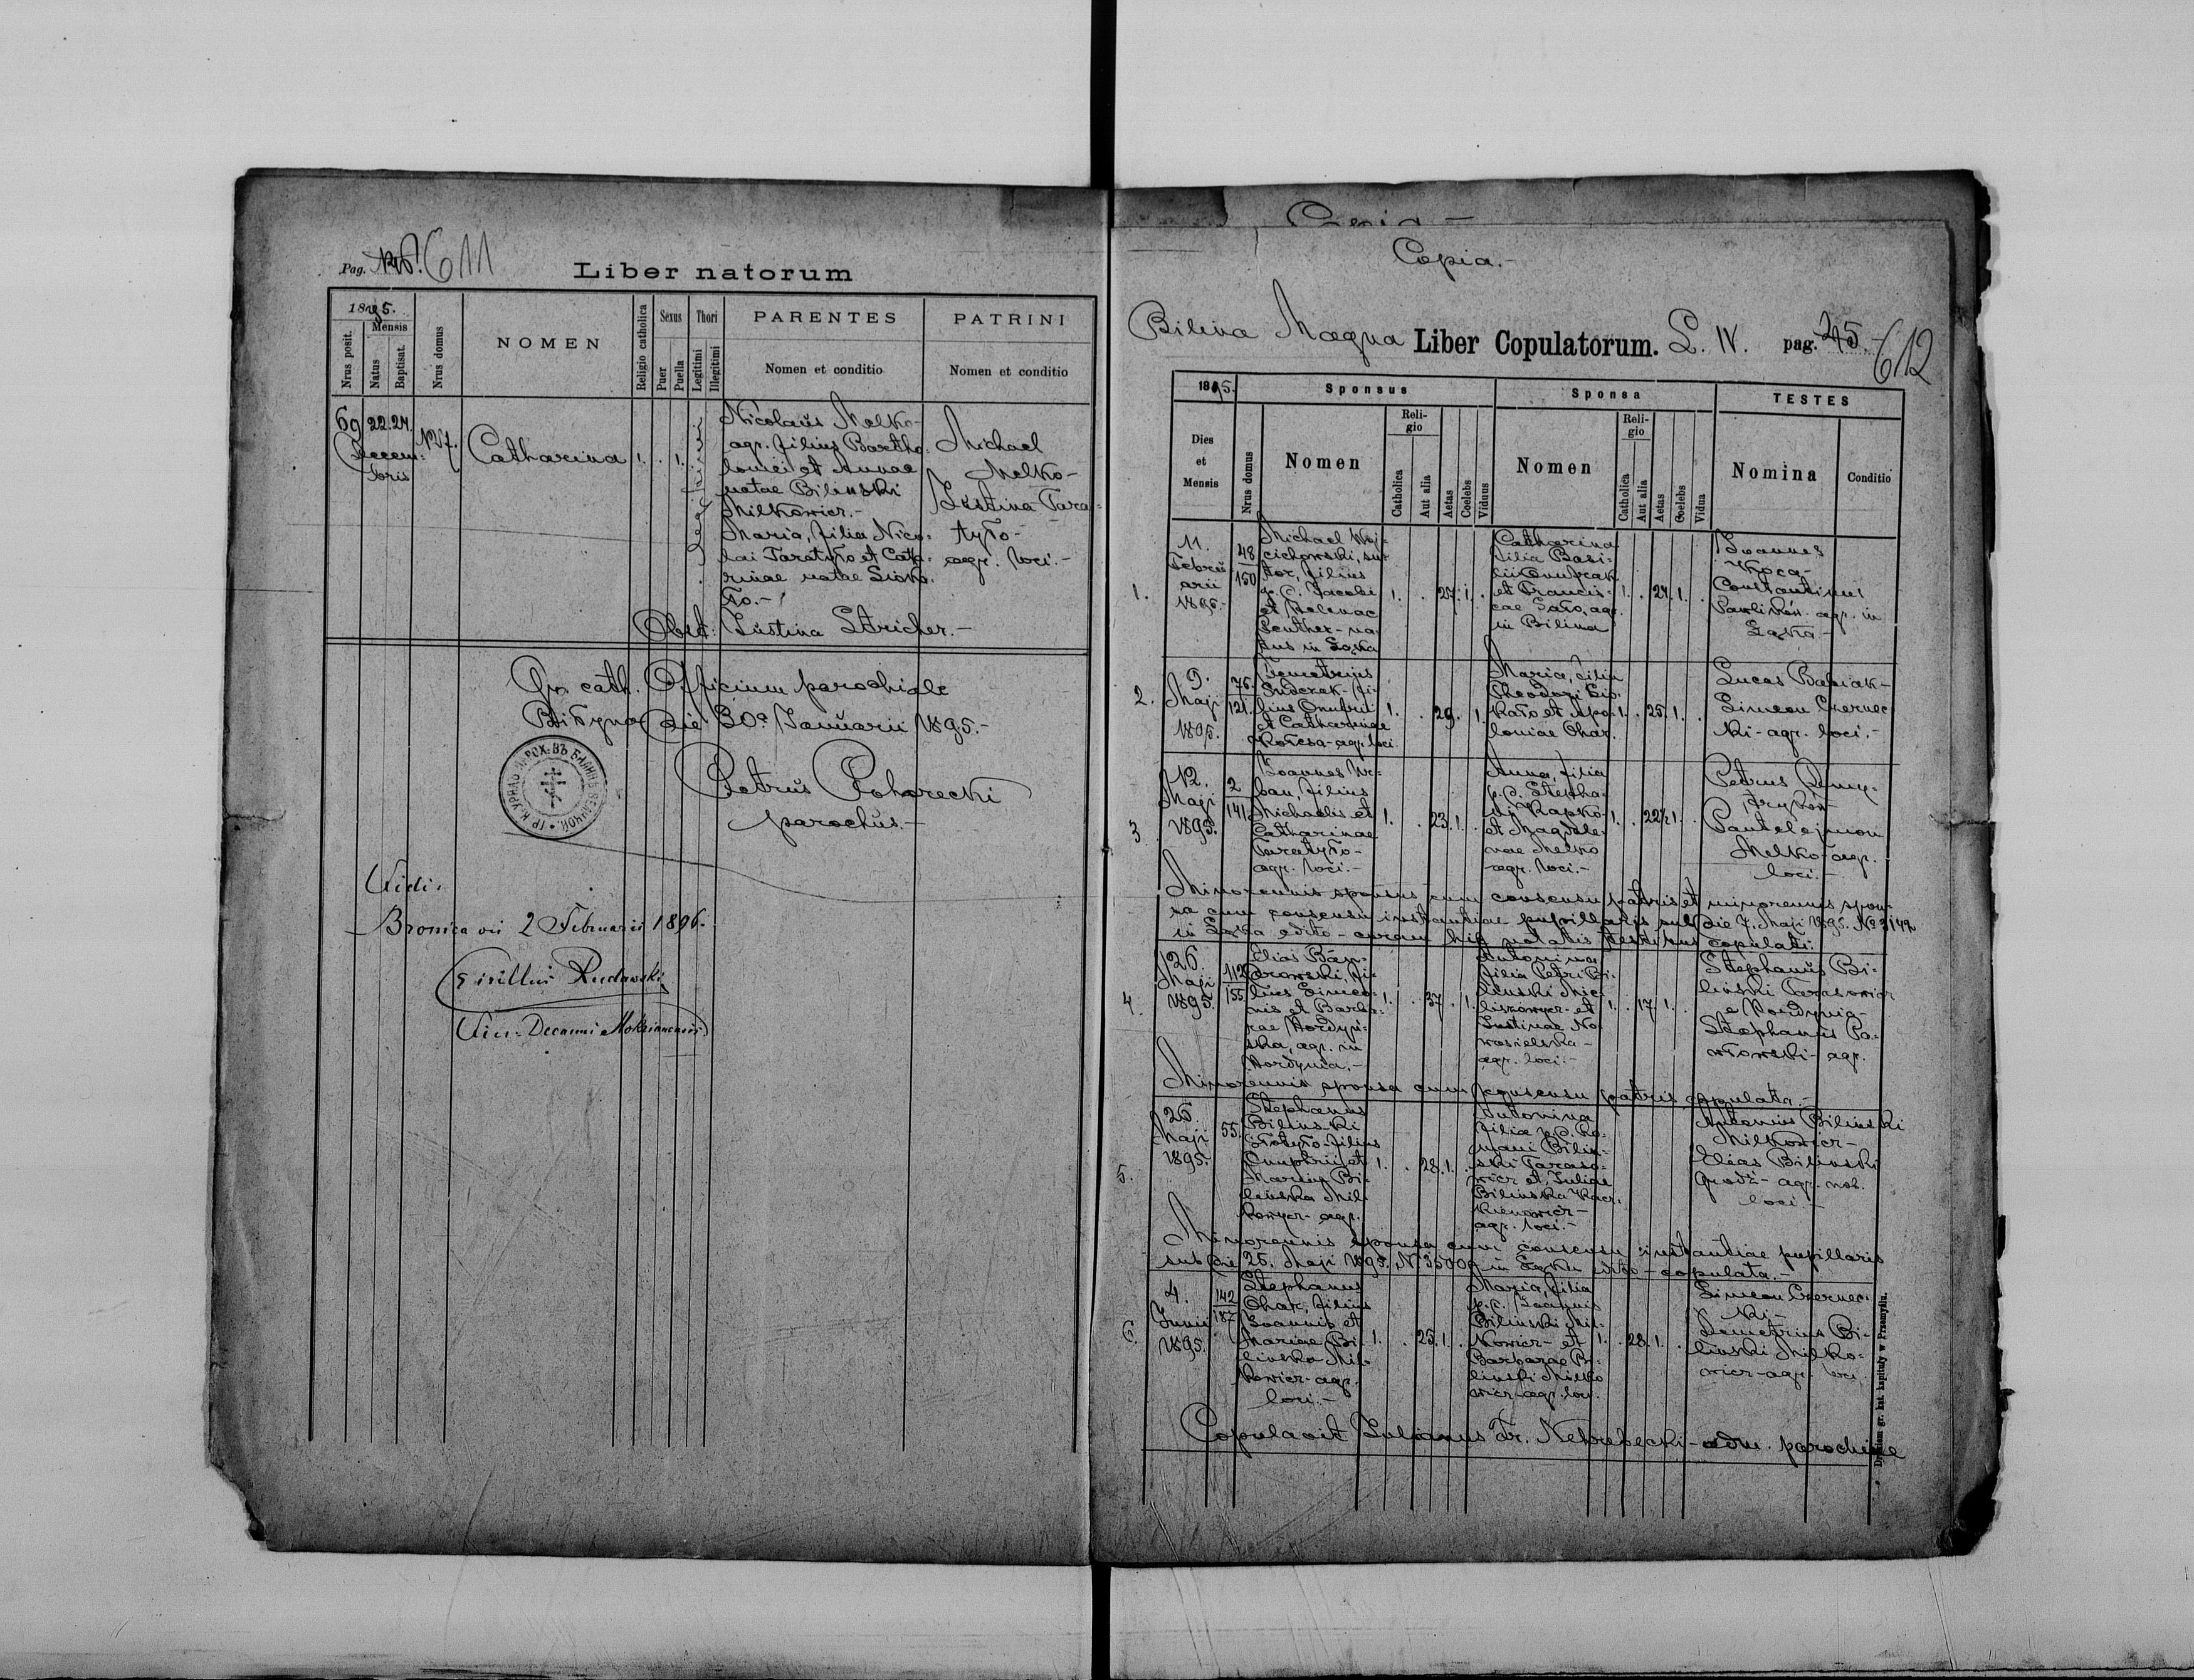 Pag. 611
Liber natorum
1895.
Mensis
Nrus posit.
Natus
Baptisat.
Nrus domus
NOMEN
Religio catholica
Sexus
Puer
Puella
Thori
Legitimi
Illegitimi
PARENTES
Nomen et conditio
PATRINI
Nomen et conditio
69
22. 24.
Decem-
bris
Catharina
1.
.
1.
Legitimi
Nicolaus Melko-
agr. filius Bartho-
lomei et Annae
natae Bilinski
Milkowicz.-
Maria, filia Nico-
lai Taratyło et Catha-
rinae natae
Michael
Melko-
Justina Tara-
tyło-
agr. loci.-
Obst: Justina Stricher.-
Gr. cath. Officium parochiale
die 30a Januarii 1895.-
Petrus Poharecki
parochus.-
Vidi.
Bronica die 2 Februarii 1896.
Cirillus Rudawski
Copia.-
Copia.-
Bilina Magna Liber Copulatorum. L. IV. pag. 612
1895.
Dies
et
Mensis
Nrus domus
Sponsus
Nomen
Reli-
gio
Catholica
Aut alia
Aetas
Coelebs
Viduus
Sponsa
Nomen
Reli-
gio
Catholica
Aut alia
Aetas
Coelebs
Vidua
TESTES
Nomina
Conditio
1.
11.
Febru-
arii
1895.-
48
150
Michael Woj-
cichowski, su-
tor, filius
p. d. Jacobi
et Helenae
in Łąka
1. . 27. 1. .
Catharina
filia Basi-
lii
et Francis-
cae agr.
in Bilina
1. . 24. 1. .
Joannes
Constantinus
agr. in
Łąka.-
2.
9.
Maji
1895.
76.
121.
Demetrius
fi-
lius Onufrii
et Catharinae
agr. loci
1. . 29. . 1.
Maria, filia
Theodori
et Apo-
loniae Ohar.
1. . 25. 1. .
Lucas Babiak-
Simeon Czernec-
ki- agr. loci.-
3.
12.
Maji
1895.
2
141
Joannes
filius
Michaelis et
Catharinae
Taratyło-
agr. loci.-
1. . 23. 1. .
Anna, filia
p. d. Stepha-
ni
et Magdale-
nae Melko
agr. loci.-
1. . 22½ 1. .
Petrus
Pantelejmon
Melko- agr.
loci.-
Minorennis sponsus cum consensu patris et minorennis spon-
sa cum consensu instantiae pupillaris sub die 7. Maji 1895. No
in Łąka edito - coram his notatis testibus copulati.
4.
26.
Maji
1895.
112
155
Elias Ban-
drowski, fi-
lius Simeo-
nis et Barba-
rae Hordyń-
ska, agr. in
Hordynia.-
1. . 37. . 1.
Antonina
filia Petri Bi-
linski
et
Justinae No-
wosielska-
agr. loci.-
1. . 17. 1. .
Stephanus Bi-
linski Tarasowicz
e Hordynia-
Stephanus Pa-
włowski- agr.
Minorennis sponsa cum consensu patris copulata.-
5.
26.
Maji
1895.
55.
Stephanus
Bilinski
filius
Onuphrii et
Mariae Bi-
linska Mil-
kowicz- agr.
1. . 28. 1. .
Antonina
filia p. d. Ro-
mani Bilin-
ski Taraso-
wicz et Juliae
Bilinska
agr. loci.-
Antonius Bilinski
Milkowicz-
Elias Bilinski
agr. nob.
loci.-
Minorennis sponsa cum consensu instantiae pupillaris
sub die 25. Maji 1895. in Łąka edito - copulata.-
6.
4.
Junii
1895.
142
187
Stephanus
Ohar, filius
Joannis et
Mariae Bi-
linska Mil-
kowicz- agr.
loci.-
1. . 25. 1. .
Maria, filia
p. d. Joannis
Bilinski Mil-
kowicz- et
Barbarae Bi-
linski Milko-
wicz- agr. loci.
1. . 28. 1. .
Simeon Czernec-
ki-
Demetrius Bi-
linski Milko-
wicz- agr. loci.
Copulavit Julianus Dr. Nehrebecki- adm. parochiae
Drukiem gr. kat. kapituły w Przemyślu.